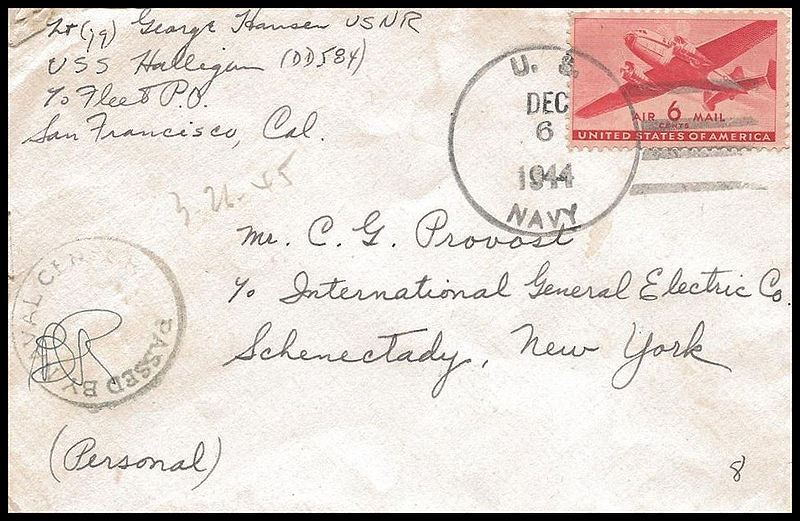 Lt (jg) George Hansen USNR
USS Halligan (DD584)
c/o Fleet P.O.
San Francisco, Cal.
AIR 6 MAIL
CENTS
UNITED STATES OF AMERICA
U. S.
DEC
6
1944
NAVY
3-21-45
Mr. C. G. Provost
c/o International General Electric Co.
Schenectady, New York
PASSED BY NAVAL CENSOR
(Personal)
8